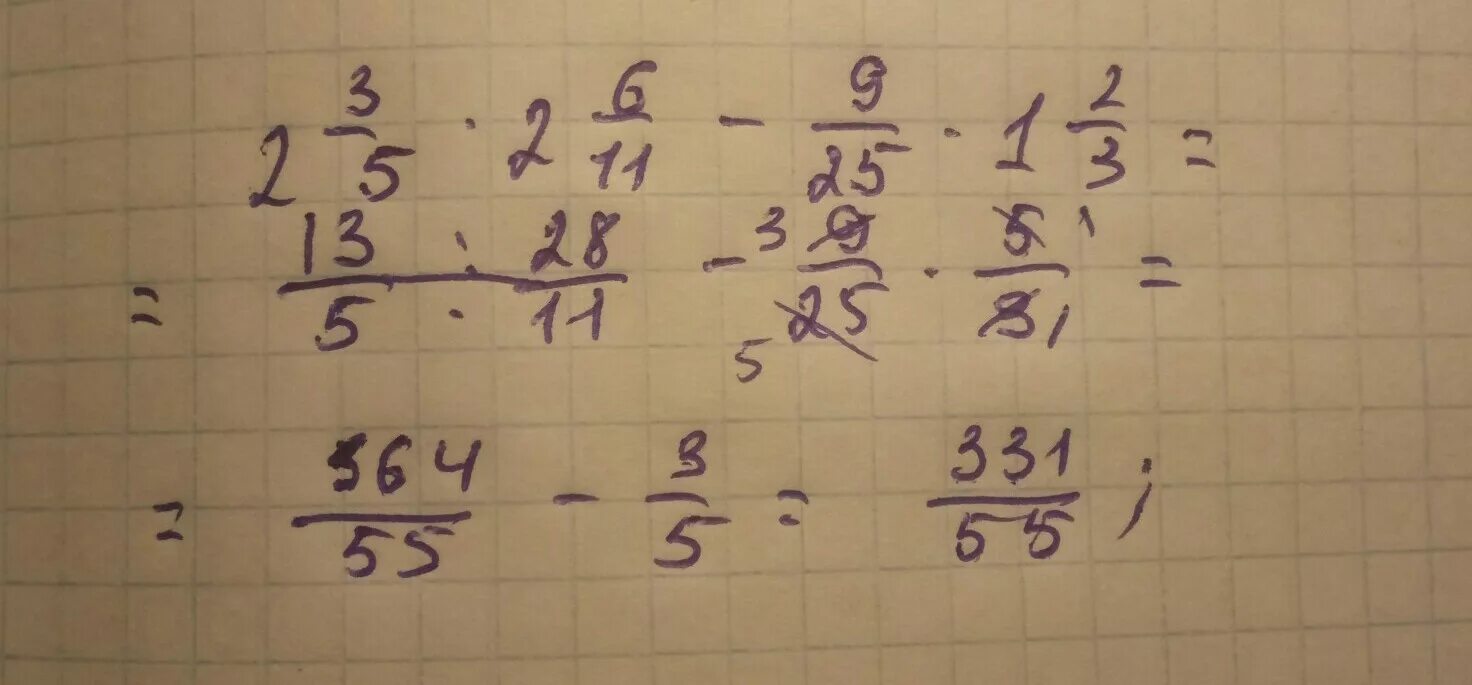 2 3/5 · 2 6/11 - 9/25 · 1 2/3 =
= 13 · 28 / 5 · 11 - 3 9/25 5 · 5 1/3 1 =
= 364/55 - 3/5 = 331/55 ;